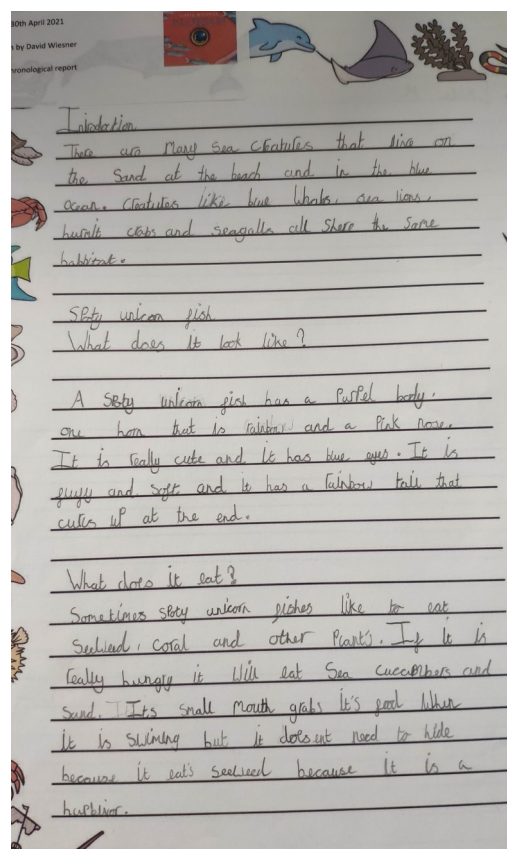 30th April 2021
by David Wiesner
chronological report
Introdation
There are many sea creatures that live on
the sand at the beach and in the blue
ocean. Creatures like blue whales, sea lions,
hurmit crabs and seagalls all share the same
habbitat.
Spoty unicorn fish
What does it look like?
A spoty unicorn fish has a purpel body.
one horn that is rainbow and a pink nose.
It is really cute and it has blue eyes. It is
fluffy and soft and it has a rainbow tail that
curls up at the end.
What does it eat?
Sometimes spoty unicorn fishes like to eat
seeweed, coral and other plants. If it is
really hungry it will eat sea cucumbers and
sand. Its small mouth grabs it's food when
it is swiming but it doesent need to hide
because it eat's seeweed because it is a